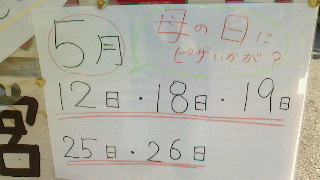 5月
母の日に
ピザいかが?
12日・18日・19日
25日・26日
営